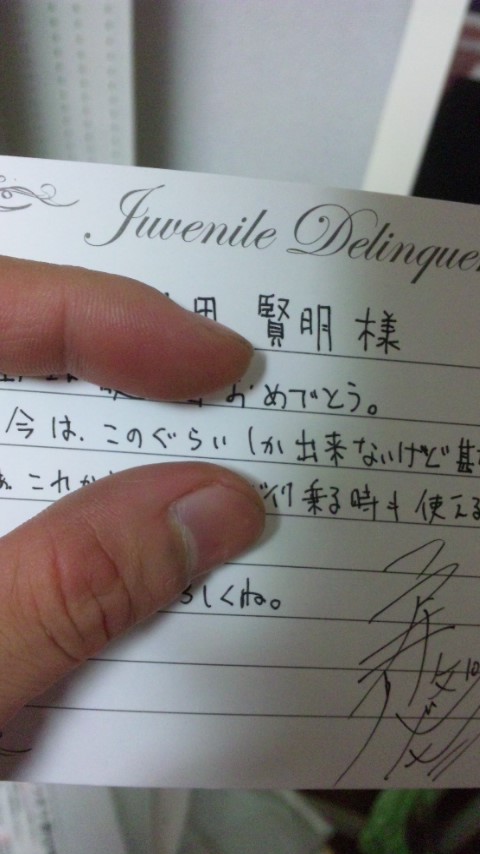 Juvenile Delinque
田 賢明 様
おめでとう。
今は、このぐらいしか出来ないけど甚
これか 乗る時も使える
ろしくね。